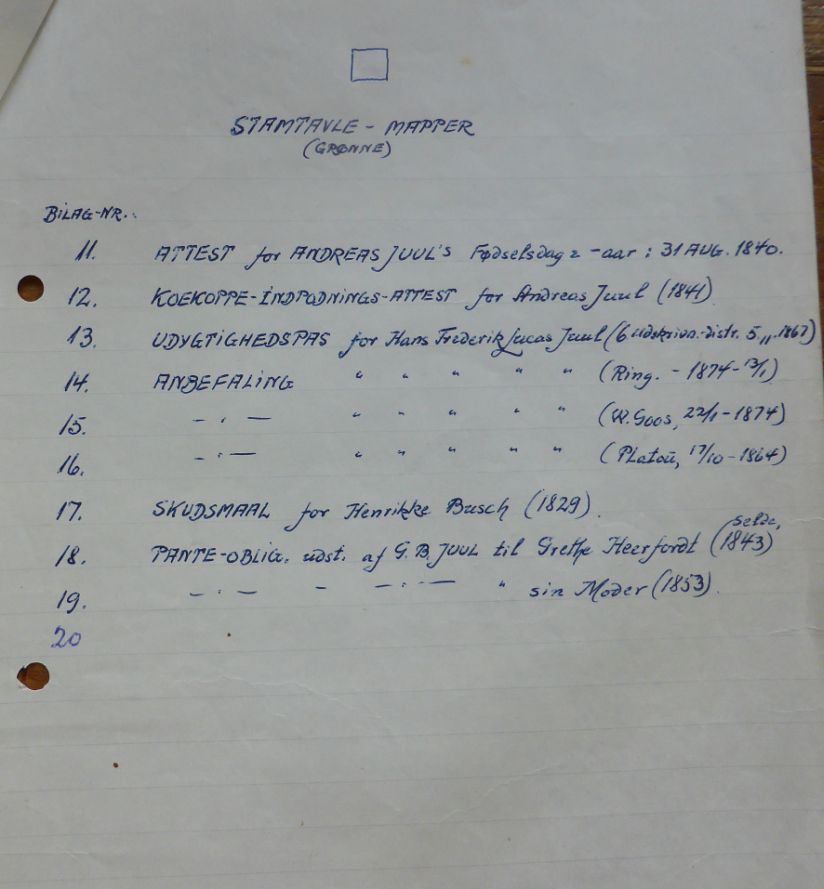 STAMTAVLE - MAPPER
(GRØNNE)
BILAG-NR.:
11. ATTEST for ANDREAS JUUL'S Fødselsdag & -aar : 31 AUG. 1840.
12. KOEKOPPE-INDPODNINGS-ATTEST for Andreas Juul (1841)
13. UDYGTIGHEDSPAS for Hans Frederik Lucas Juul (6. udskrivn.-distr. 5/11 1867)
14. ANBEFALING " " " " " (Ring. - 1874 - 13/1)
15. - " - " " " " " (W. Goos, 22/1 - 1874)
16. - " - " " " " " (Platou, 17/10 - 1864)
17. SKUDSMAAL for Henrikke Busch (1829).
18. PANTE-OBLIG. udst. af G.B. JUUL til Grethe Heerfordt (Selde, 1843)
19. - " - - - " - " sin Moder (1853).
20